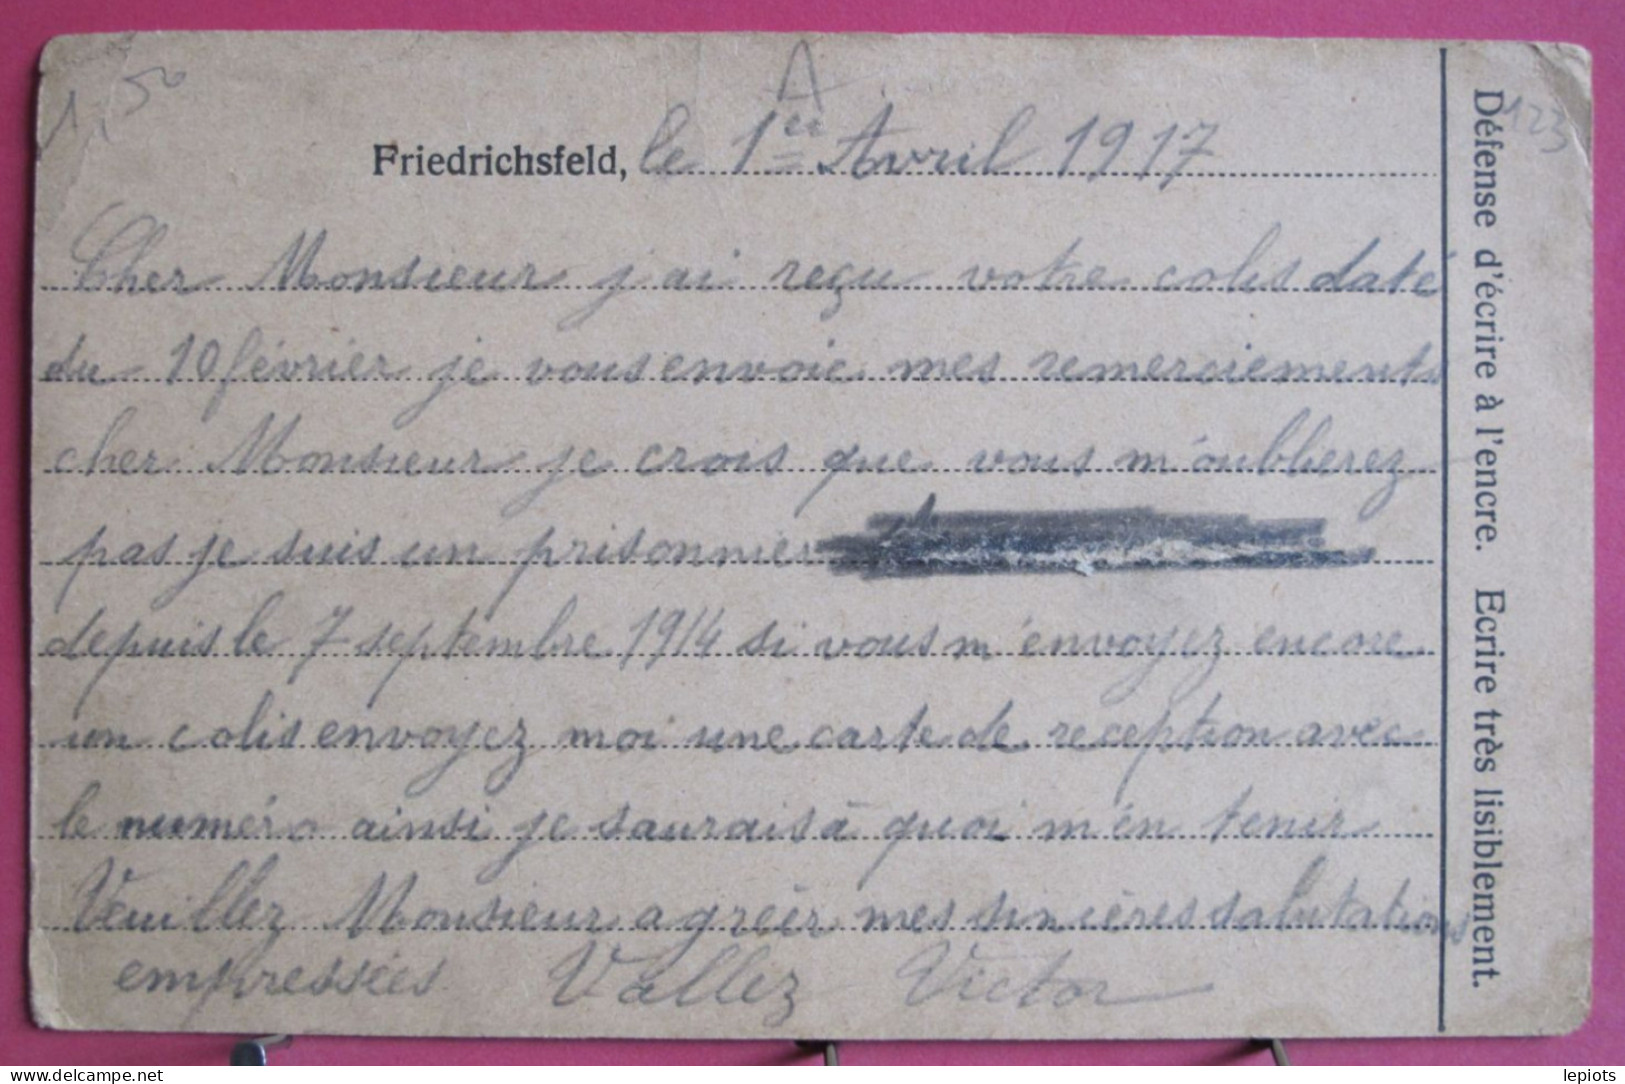 1,50
A
123
Friedrichsfeld, le 1er Avril 1917
Cher Monsieur j'ai reçu votre colis daté
du 10 février je vous envoie mes remerciements
cher Monsieur je crois que vous m'oublierez
pas je suis un prisonnier
depuis le 7 septembre 1914 si vous m'envoyez encore
un colis envoyez moi une carte de reception avec
le numéro ainsi je saurais à quoi m'en tenir
Veuillez Monsieur agréer mes sincères salutations
empressées Vallez Victor
Défense d'écrire à l'encre. Ecrire très lisiblement.
lepiots